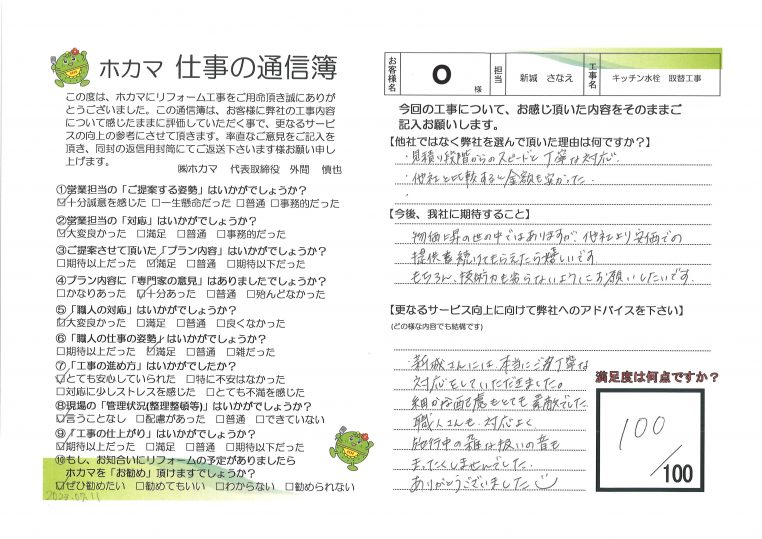 ホカマ 仕事の通信簿
この度は、ホカマにリフォーム工事をご用命頂き誠にありが
とうございました。この通信簿は、お客様に弊社の工事内容
について感じたままに評価していただく事で、更なるサービ
スの向上の参考にさせて頂きます。率直なご意見をご記入を
頂き、同封の返信用封筒にてご返送下さいます様お願い申し
上げます。
㈱ホカマ 代表取締役 外間 慎也
①営業担当の「ご提案する姿勢」はいかがでしょうか?
☑十分誠意を感じた □一生懸命だった □普通 □事務的だった
②営業担当の「対応」はいかがでしょうか?
☑大変良かった □満足 □普通 □事務的だった
③ご提案させて頂いた「プラン内容」はいかがでしょうか?
□期待以上だった ☑満足 □普通 □期待以下だった
④プラン内容に「専門家の意見」はありましたでしょうか?
□かなりあった ☑十分あった □普通 □殆んどなかった
⑤「職人の対応」はいかがでしょうか?
☑大変良かった □満足 □普通 □良くなかった
⑥「職人の仕事の姿勢」はいかがでしょうか?
□期待以上だった ☑満足 □普通 □雑だった
⑦「工事の進め方」はいかがでしたか?
☑とても安心していられた □特に不安はなかった
□対応に少しストレスを感じた □とても不満を感じた
⑧現場の「管理状況(整理整頓等)」はいかがでしょうか?
☑言うことなし □配慮があった □普通 □できていない
⑨「工事の仕上がり」はいかがでしょうか?
☑期待以上だった □満足 □普通 □期待以下だった
⑩もし、お知合いにリフォームの予定がありましたら
ホカマを「お勧め」頂けますでしょうか?
☑ぜひ勧めたい □勧めてもいい □わからない □勧められない
2023.07.11
お客様名 O 様 担当 新城 さなえ 工事名 キッチン水栓 取替工事
今回の工事について、お感じ頂いた内容をそのままご
記入お願いします。
【他社ではなく弊社を選んで頂いた理由は何ですか?】
・見積り段階からのスピードと丁寧な対応。
・他社と比較すると金額も安かった。
・
【今後、我社に期待すること】
物価上昇の世の中ではありますが、他社より安価での
提供を続けてもらえたら嬉しいです。
もちろん、技術力も劣らないようにお願いしたいです。
【更なるサービス向上に向けて弊社へのアドバイスを下さい】
(どの様な内容でも結構です)
新城さんには本当にご丁寧な
対応をしていただきました。
細かな配慮もとても素敵でした。
職人さんも対応よく
施行中の雑な扱いの音も
まったくしませんでした。
ありがとうございました
満足度は何点ですか?
100
/100